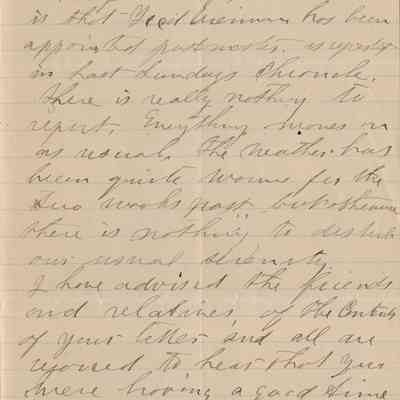 is that Fred has been
appointed postmaster.
in last Sundays Chronicle.
There is really nothing to
report. Everything moves on
as usual. The weather has
been quite warm for the
two weeks past but otherwise
there is nothing to disturb
our usual serenity
I have advised the friends
and relatives of the contents
of your letter and all are
rejoiced to hear that you
were having a good time